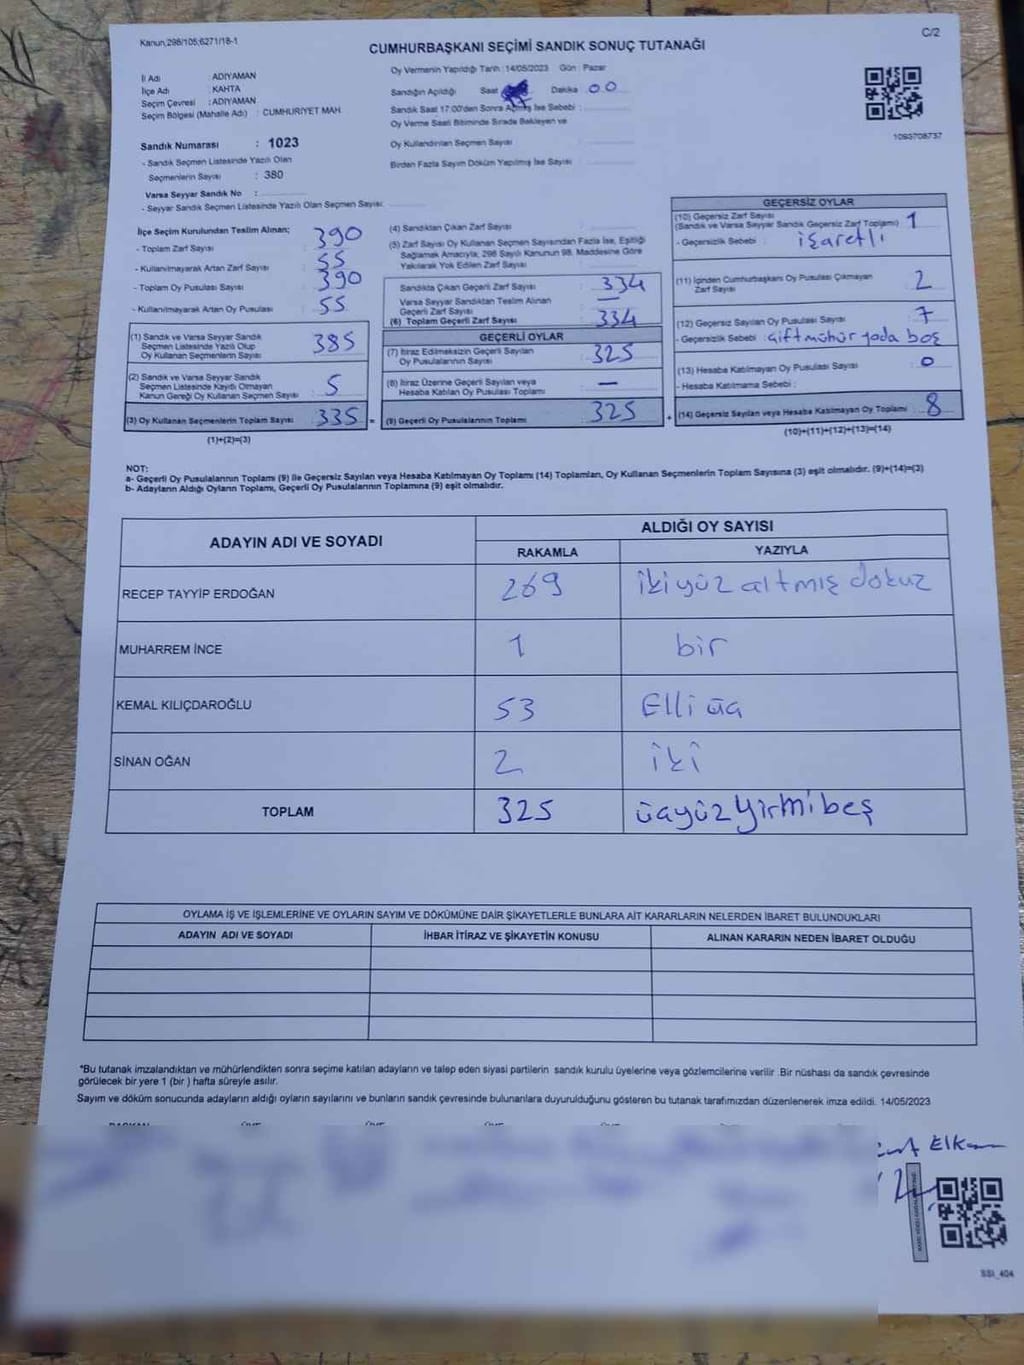 Kanun,298/105;6271/18-1
C/2
CUMHURBAŞKANI SEÇİMİ SANDIK SONUÇ TUTANAĞI
İl Adı ADIYAMAN
İlçe Adı KAHTA
Seçim Çevresi : ADIYAMAN
Seçim Bölgesi (Mahalle Adı) : CUMHURİYET MAH.
Oy Vermenin Yapıldığı Tarih : 14/05/2023 Gün : Pazar
Sandığın Açıldığı Saat Dakika 00
Sandık Saat 17:00'den Sonra Açılmış İse Sebebi :
Oy Verme Saati Bitiminde Sırada Bekleyen ve
Oy Kullandırılan Seçmen Sayısı :
Birden Fazla Sayım Döküm Yapılmış İse Sayısı :
1093708737
Sandık Numarası : 1023
- Sandık Seçmen Listesinde Yazılı Olan
Seçmenlerin Sayısı : 380
Varsa Seyyar Sandık No :
- Seyyar Sandık Seçmen Listesinde Yazılı Olan Seçmen Sayısı:
İlçe Seçim Kurulundan Teslim Alınan;
- Toplam Zarf Sayısı : 390
- Kullanılmayarak Artan Zarf Sayısı : 55
- Toplam Oy Pusulası Sayısı : 390
- Kullanılmayarak Artan Oy Pusulası : 55
(1) Sandık ve Varsa Seyyar Sandık
Seçmen Listesinde Yazılı Olup
Oy Kullanan Seçmenlerin Sayısı : 385
(2) Sandık ve Varsa Seyyar Sandık
Seçmen Listesinde Kaydı Olmayan
Kanun Gereği Oy Kullanan Seçmen Sayısı : 5
(3) Oy Kullanan Seçmenlerin Toplam Sayısı : 335 =
(1)+(2)=(3)
(4) Sandıktan Çıkan Zarf Sayısı :
(5) Zarf Sayısı Oy Kullanan Seçmen Sayısından Fazla İse, Eşitliği
Sağlamak Amacıyla, 298 Sayılı Kanunun 98. Maddesine Göre
Yakılarak Yok Edilen Zarf Sayısı :
Sandıkta Çıkan Geçerli Zarf Sayısı : 334
Varsa Seyyar Sandıktan Teslim Alınan
Geçerli Zarf Sayısı : —
(6) Toplam Geçerli Zarf Sayısı : 334
GEÇERLİ OYLAR
(7) İtiraz Edilmeksizin Geçerli Sayılan
Oy Pusulalarının Sayısı : 325
(8) İtiraz Üzerine Geçerli Sayılan veya
Hesaba Katılan Oy Pusulası Toplamı : —
(9) Geçerli Oy Pusulalarının Toplamı : 325 +
GEÇERSİZ OYLAR
(10) Geçersiz Zarf Sayısı
(Sandık ve Varsa Seyyar Sandık Geçersiz Zarf Toplamı) : 1
- Geçersizlik Sebebi : işaretli
(11) İçinden Cumhurbaşkanı Oy Pusulası Çıkmayan
Zarf Sayısı : 2
(12) Geçersiz Sayılan Oy Pusulası Sayısı : 7
- Geçersizlik Sebebi : çift mühür yada boş
(13) Hesaba Katılmayan Oy Pusulası Sayısı : 0
- Hesaba Katılmama Sebebi :
(14) Geçersiz Sayılan veya Hesaba Katılmayan Oy Toplamı : 8
(10)+(11)+(12)+(13)=(14)
NOT:
a- Geçerli Oy Pusulalarının Toplamı (9) ile Geçersiz Sayılan veya Hesaba Katılmayan Oy Toplamı (14) Toplamları, Oy Kullanan Seçmenlerin Toplam Sayısına (3) eşit olmalıdır. (9)+(14)=(3)
b- Adayların Aldığı Oyların Toplamı, Geçerli Oy Pusulalarının Toplamına (9) eşit olmalıdır.
ADAYIN ADI VE SOYADI
ALDIĞI OY SAYISI
RAKAMLA YAZIYLA
RECEP TAYYİP ERDOĞAN 269 iki yüz altmış dokuz
MUHARREM İNCE 1 bir
KEMAL KILIÇDAROĞLU 53 Elli üç
SİNAN OĞAN 2 iki
TOPLAM 325 üçyüz yirmi beş
OYLAMA İŞ VE İŞLEMLERİNE VE OYLARIN SAYIM VE DÖKÜMÜNE DAİR ŞİKAYETLERLE BUNLARA AİT KARARLARIN NELERDEN İBARET BULUNDUKLARI
ADAYIN ADI VE SOYADI İHBAR İTİRAZ VE ŞİKAYETİN KONUSU ALINAN KARARIN NEDEN İBARET OLDUĞU
*Bu tutanak imzalandıktan ve mühürlendikten sonra seçime katılan adayların ve talep eden siyasi partilerin sandık kurulu üyelerine veya gözlemcilerine verilir .Bir nüshası da sandık çevresinde
görülecek bir yere 1 (bir ) hafta süreyle asılır.
Sayım ve döküm sonucunda adayların aldığı oyların sayılarını ve bunların sandık çevresinde bulunanlara duyurulduğunu gösteren bu tutanak tarafımızdan düzenlenerek imza edildi. 14/05/2023
SSI_404